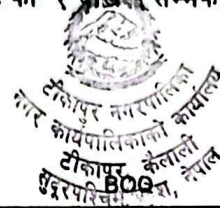 टीकापुर नगरपालिका
नगर कार्यपालिकाको कार्यालय
टीकापुर, कैलाली
सुदूरपश्चिम प्रदेश, नेपाल
BOQ